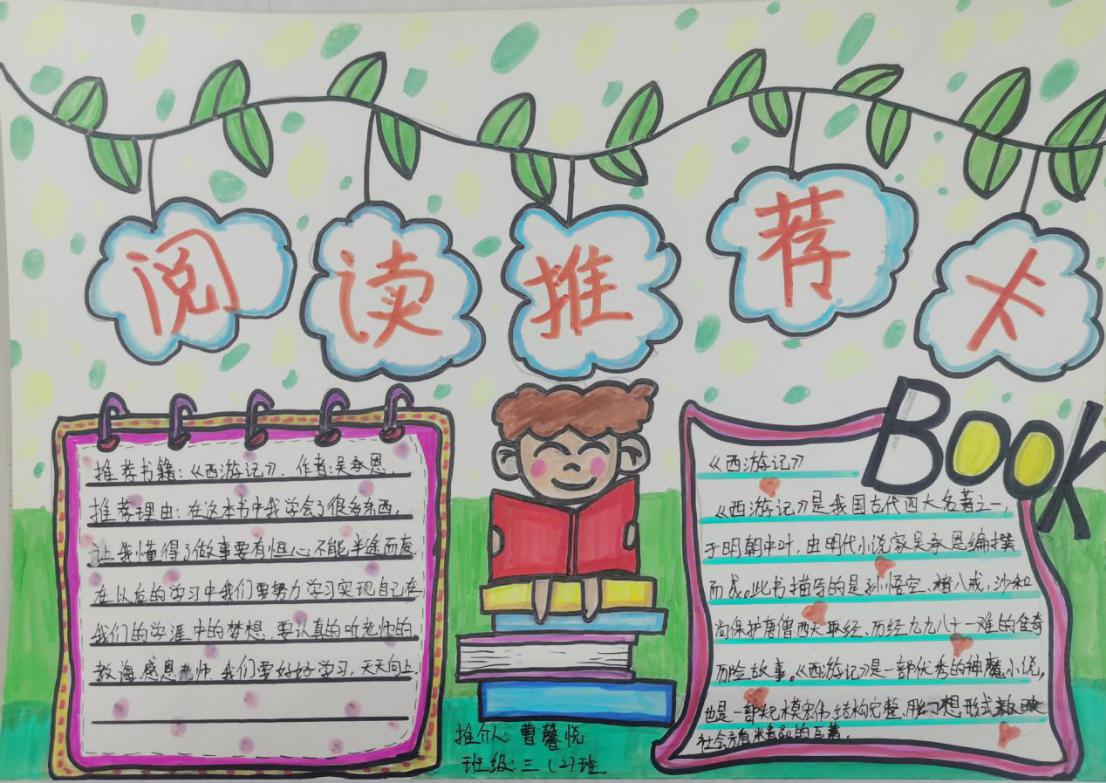 阅读推荐卡
推荐书籍:《西游记》. 作者:吴承恩.
推荐理由:在这本书中我学会了很多东西,
让我懂得了做事要有恒心不能半途而废
在以后的学习中我们要努力学习实现自己在
我们的学涯中的梦想.要认真的听老师的
教海感恩老师.我们要好好学习,天天向上
Book
《西游记》
《西游记》是我国古代四大名著之一,
于明朝中叶,由明代小说家吴承恩编撰
而成。此书描写的是孙悟空、猪八戒,沙和
尚保护唐僧西天取经、历经九九八十一难的传奇
历险故事。《西游记》是一部优秀的神魔小说,
也是一部规模宏伟结构完整、用 想形式
社会 的巨著。
推介人:曹馨悦
班级:三(2)班